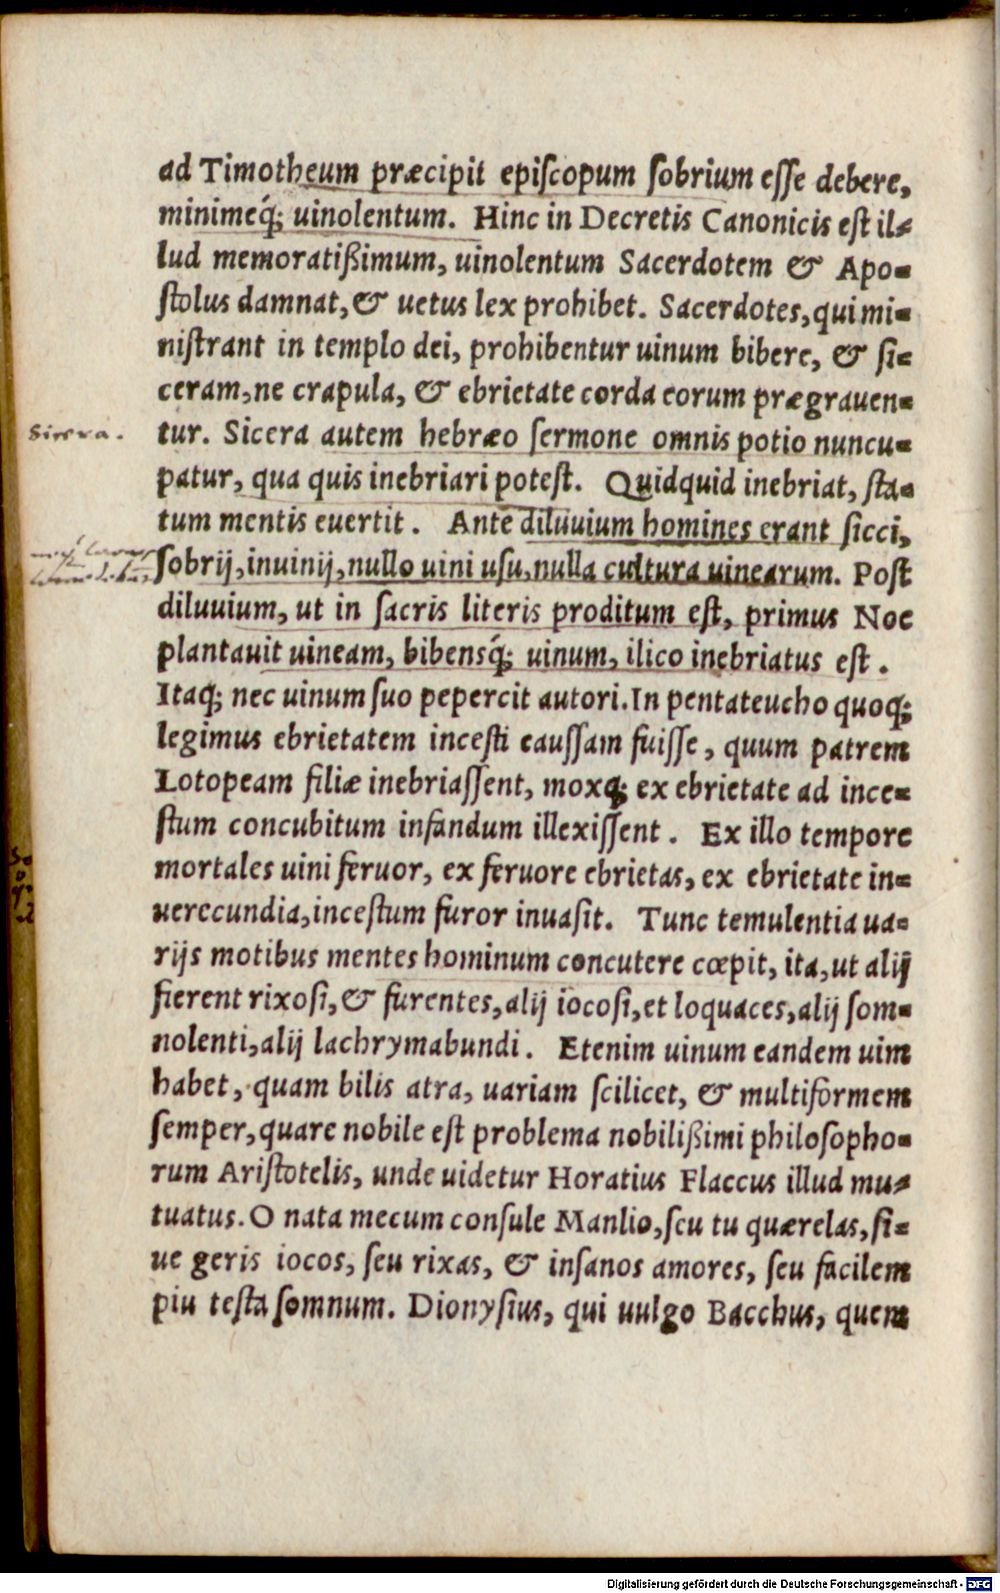 ad Timotheum præcipit epiſcopum ſobrium eſſe debere,
minimeq́; uinolentum. Hinc in Decretis Canonicis eſt il⸗
lud memoratißimum, uinolentum Sacerdotem & Apo⸗
ſtolus damnat, & uetus lex prohibet. Sacerdotes, qui mi⸗
niſtrant in templo dei, prohibentur uinum bibere, & ſi⸗
ceram, ne crapula, & ebrietate corda eorum prægrauen⸗
Sicera.
tur. Sicera autem hebræo ſermone omnis potio nuncu⸗
patur, qua quis inebriari poteſt. Quidquid inebriat, ſta⸗
tum mentis euertit. Ante diluuium homines erant ſicci,
ſobrij, inuinij, nullo uini uſu, nulla cultura uinearum. Poſt
diluuium, ut in ſacris literis proditum eſt, primus Noe
plantauit uineam, bibensq́; uinum, ilico inebriatus eſt.
Itaq; nec uinum ſuo pepercit autori. In pentateucho quoq;
legimus ebrietatem inceſti cauſſam fuiſſe, quum patrem
Lotopeam filiæ inebriaſſent, moxq; ex ebrietate ad ince⸗
ſtum concubitum infandum illexiſſent. Ex illo tempore
mortales uini feruor, ex feruore ebrietas, ex ebrietate in⸗
uerecundia, inceſtum furor inuaſit. Tunc temulentia ua⸗
rijs motibus mentes hominum concutere cœpit, ita, ut alij
fierent rixoſi, & furentes, alij iocoſi, et loquaces, alij ſom⸗
nolenti, alij lachrymabundi. Etenim uinum eandem uim
habet, quam bilis atra, uariam ſcilicet, & multiformem
ſemper, quare nobile eſt problema nobilißimi philoſopho⸗
rum Ariſtotelis, unde uidetur Horatius Flaccus illud mu⸗
tuatus. O nata mecum conſule Manlio, ſeu tu quærelas, ſi⸗
ue geris iocos, ſeu rixas, & inſanos amores, ſeu facilem
piu teſta ſomnum. Dionyſius, qui uulgo Bacchus, quem
Digitalisierung gefördert durch die Deutsche Forschungsgemeinschaft - DFG